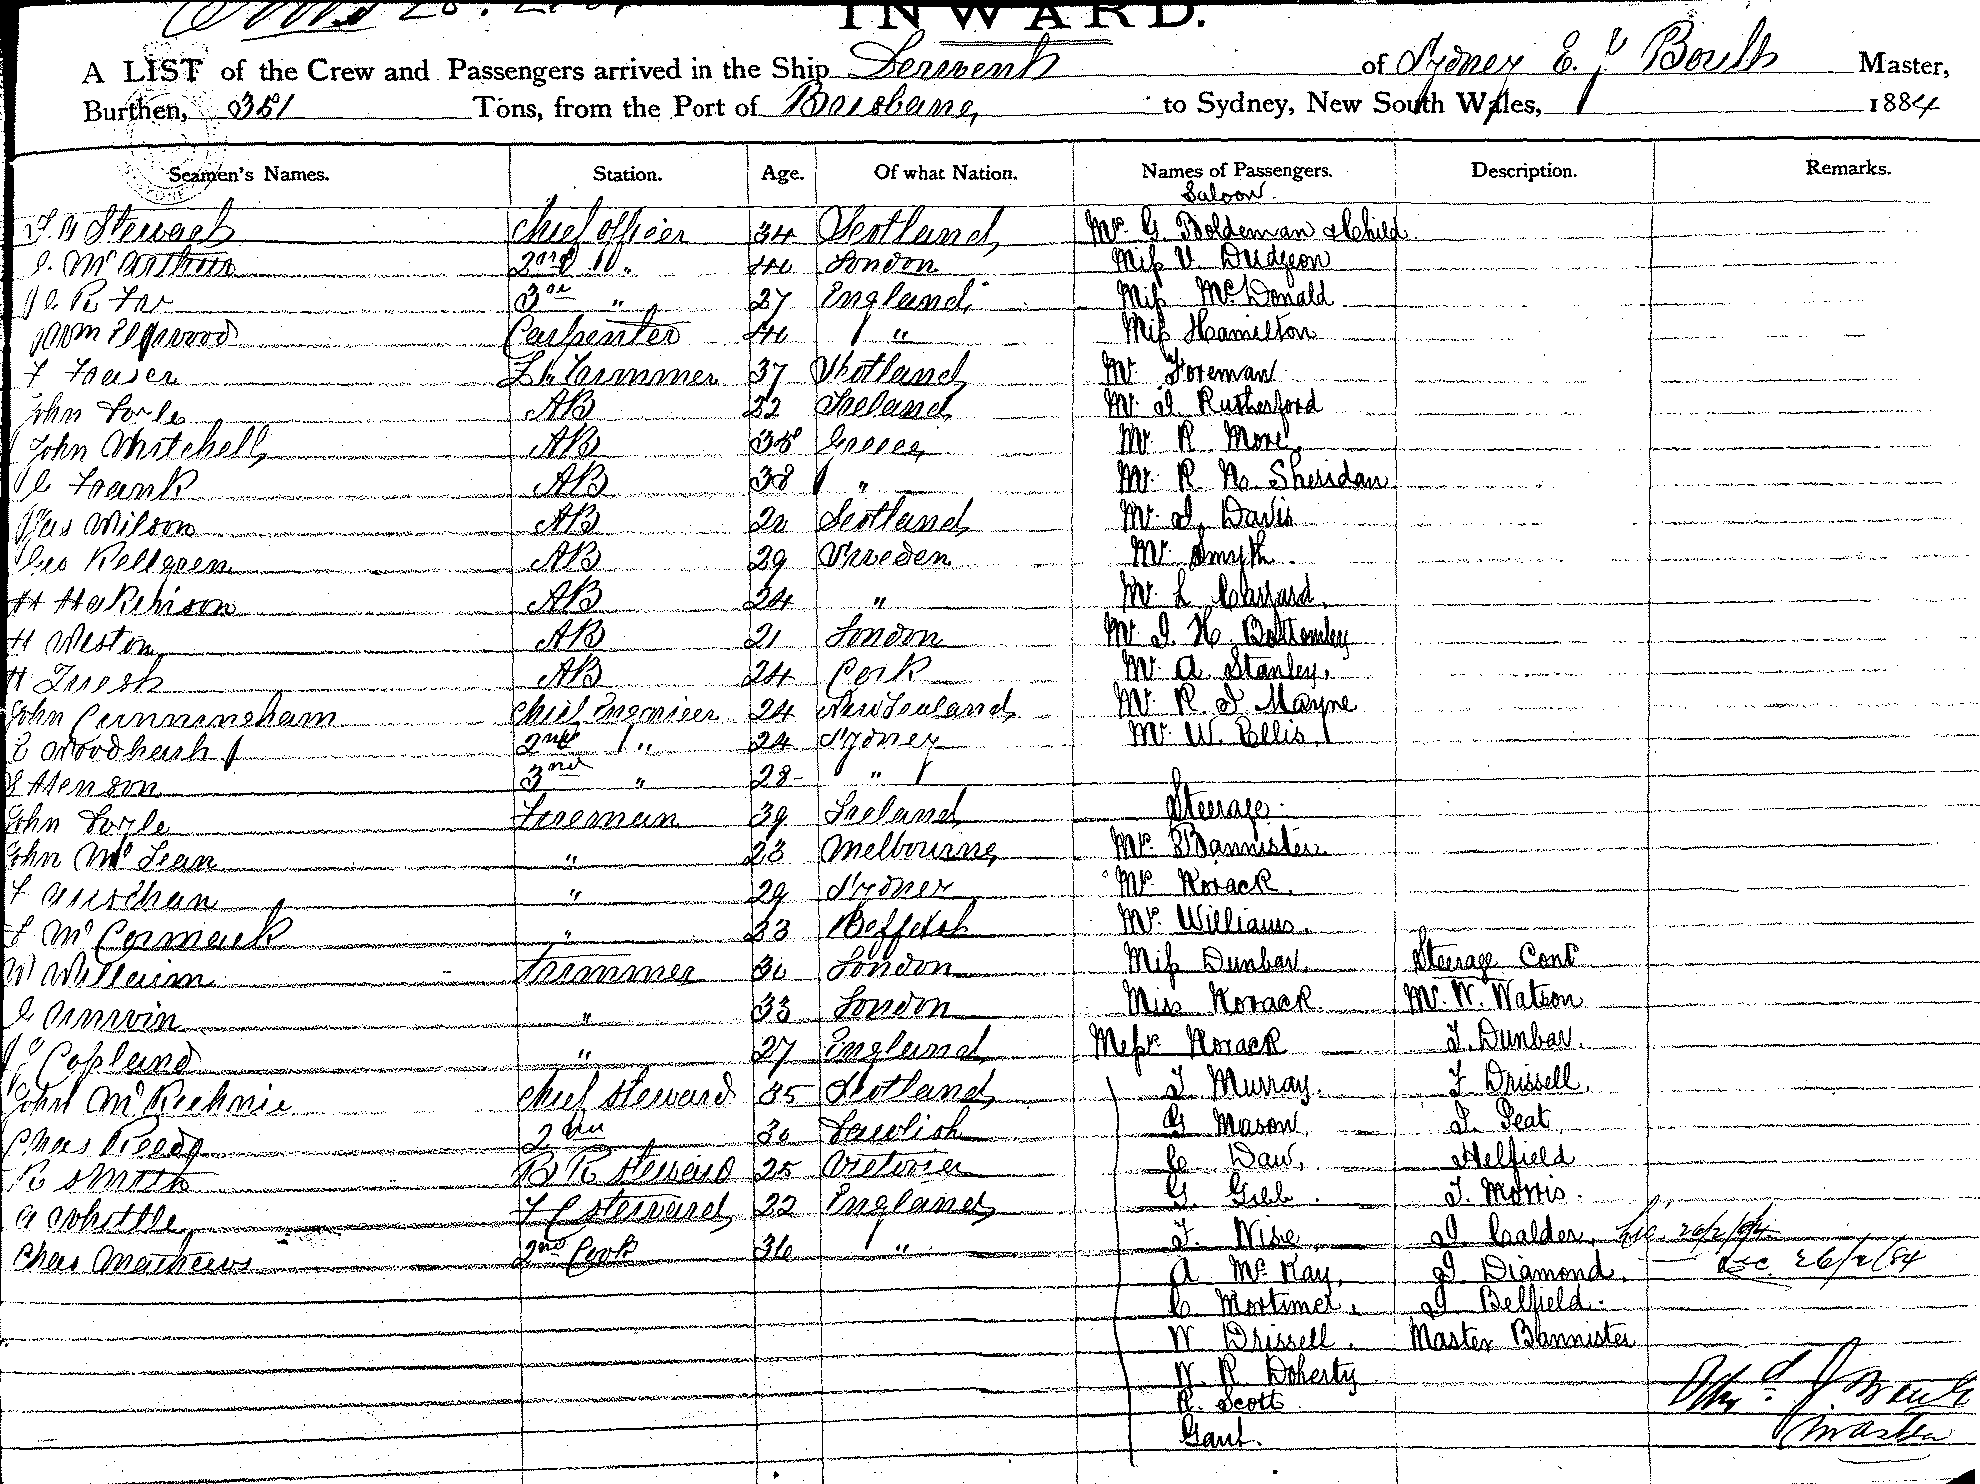 INWARD.
A LIST of the Crew and Passengers arrived in the Ship Derwent of Sydney E. J Boult Master,
Burthen, 351 Tons, from the Port of Brisbane, to Sydney, New South Wales, 1884
Seamen's Names. Station. Age. Of what Nation. Names of Passengers. Description. Remarks.
Saloon.
Stewart Chief Officer 34 Scotland Mrs. G. Boldeman & Child
McArthur 2nd Do. 40 London Miss V. Dudgeon
3rd " 27 England Miss McDonald
Wm Carpenter 40 " Miss Hamilton
F Fraser Lp Trimmer 37 Scotland Mr Foreman
John Doyle AB 22 Ireland Mr. J Rutherford
John Mitchell AB 38 Greece Mr. R More
C Frank AB 38 " Mr. R. N. Sheridan
Jas Wilson AB 20 Scotland Mr. J. Davis
Kellgren AB 29 Sweden Mr. Smyth.
H Hakinson AB 24 " Mr. L
H Weston AB 21 London Mr J. H. Bottomley
H AB 24 Cork Mr. A. Stanley.
John Cunningham Chief Engineer 24 New Zealand Mr. R. J. Mayne
2nd " 24 Sydney Mr. W. Ellis
Henson 3rd " 28 "
John Doyle Fireman 39 Ireland Steerage.
John McLean " 23 Melbourne Mrs. Bannister
F " 29 Sydney Mrs Horack.
McCormack " 33 Mrs. Williams.
W William Trimmer 30 London Miss Dunbar Steerage Cont
" 33 London Miss Horack Mr. W. Watson
Copland " 27 England Messrs Horack J. Dunbar.
John McKechnie Chief Steward 35 Scotland J. Murray. F Drissell.
Chas 2nd 30 Dawlish G Mason J. Peat
R Smith B R Steward 25 Victoria C Daw, Helfield
A Whittle F C Steward 22 England G. Gibb. J. Morris.
Chas Mathews 2nd Cook 36 " J. Wise J Calder. 26/2/84
A McKay, J. Diamond. 26/2/84
C Mortimer. J Belfield.
W Drissell. Master Bannister
W. R. Doherty
R. Scott
Gant.
Master